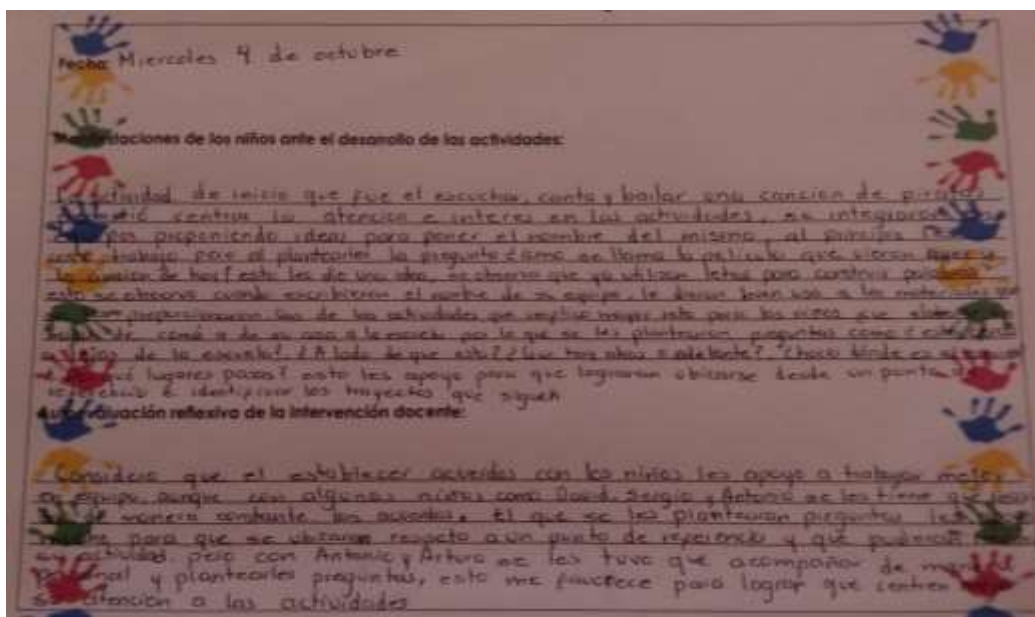 Fecha: Miercoles 4 de octubre
Manifestaciones de los niños ante el desarrollo de las actividades:
actividad de inicio que fue el escuchar, canta y bailar una cancion de piratas
centrar la atencion e interes en las actividades, se integraron
proponiendo ideas para poner el nombre del mismo, al principio
trabajo pero al plantearles la pregunta como se llama la pelicula que vieron ayer y
la cancion de hoy? esto les dio una idea, se observo que ya utilizan letras para construir
esto se observo cuando escribieron el nombre de su equipo, le dieron buen uso a los materiales
proporcionaron las actividades que implico mayor reto para los niños fue
de su casa a la escuela por lo que se les plantearon preguntas como ¿esta
lejos de la escuela? ¿A lado de que esta? ¿Que hay atras o adelante? ¿hacia dónde
qué lugares pasas? esto les apoyo para que lograran ubicarse desde un punto
referencia e identificar los trayectos que siguen
Autoevaluación reflexiva de la intervención docente:
Considero que el establecer acuerdos con los niños les apoyo a trabajar mejor
equipo, aunque con algunos niños como David, Sergio y Antonio se les tiene que
manera constante los acuerdos. El que se les plantearon preguntas
para que se ubicaran respecto a un punto de referencia y que pudieran
su actividad pero con Antonio y Arturo se les tuvo que acompañar de manera
personal y plantearles preguntas, esto me favorece para lograr que centren
su atención a las actividades